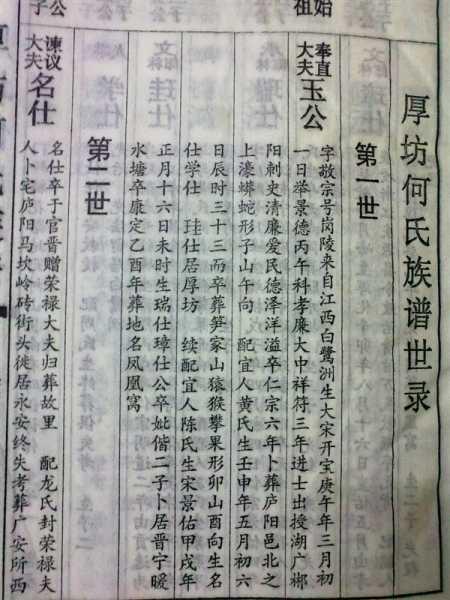 厚坊何氏族谱世录
第一世
始祖
奉直大夫玉公
字敬宗号岗陵来自江西白鹭洲生大宋开宝庚午年三月初
一日举景德丙午科孝廉大中祥符三年进士出授湖广郴
阳刺史清廉爱民德泽洋溢卒仁宗六年卜葬庐阳邑北之
上濠蟒蛇形子山午向 配宜人黄氏生壬申年五月初六
日辰时三十三而卒葬笋家山猿猴攀果形卯山酉向生名
仕学仕 珪仕居厚坊 续配宜人陈氏生宋景佑甲戌年
正月十六日未时生瑞仕璋仕公卒妣偕二子卜居晋宁暖
水塘卒康定乙酉年葬地名凤凰窝
第二世
谏议大夫名仕
名仕卒于官晋赠荣禄大夫归葬故里 配龙氏封荣禄夫
人卜宅庐阳马坎岭砖街头徙居永安终失考葬广安所西